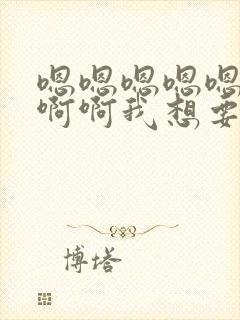 嗯嗯嗯嗯嗯
啊啊我想要
博塔